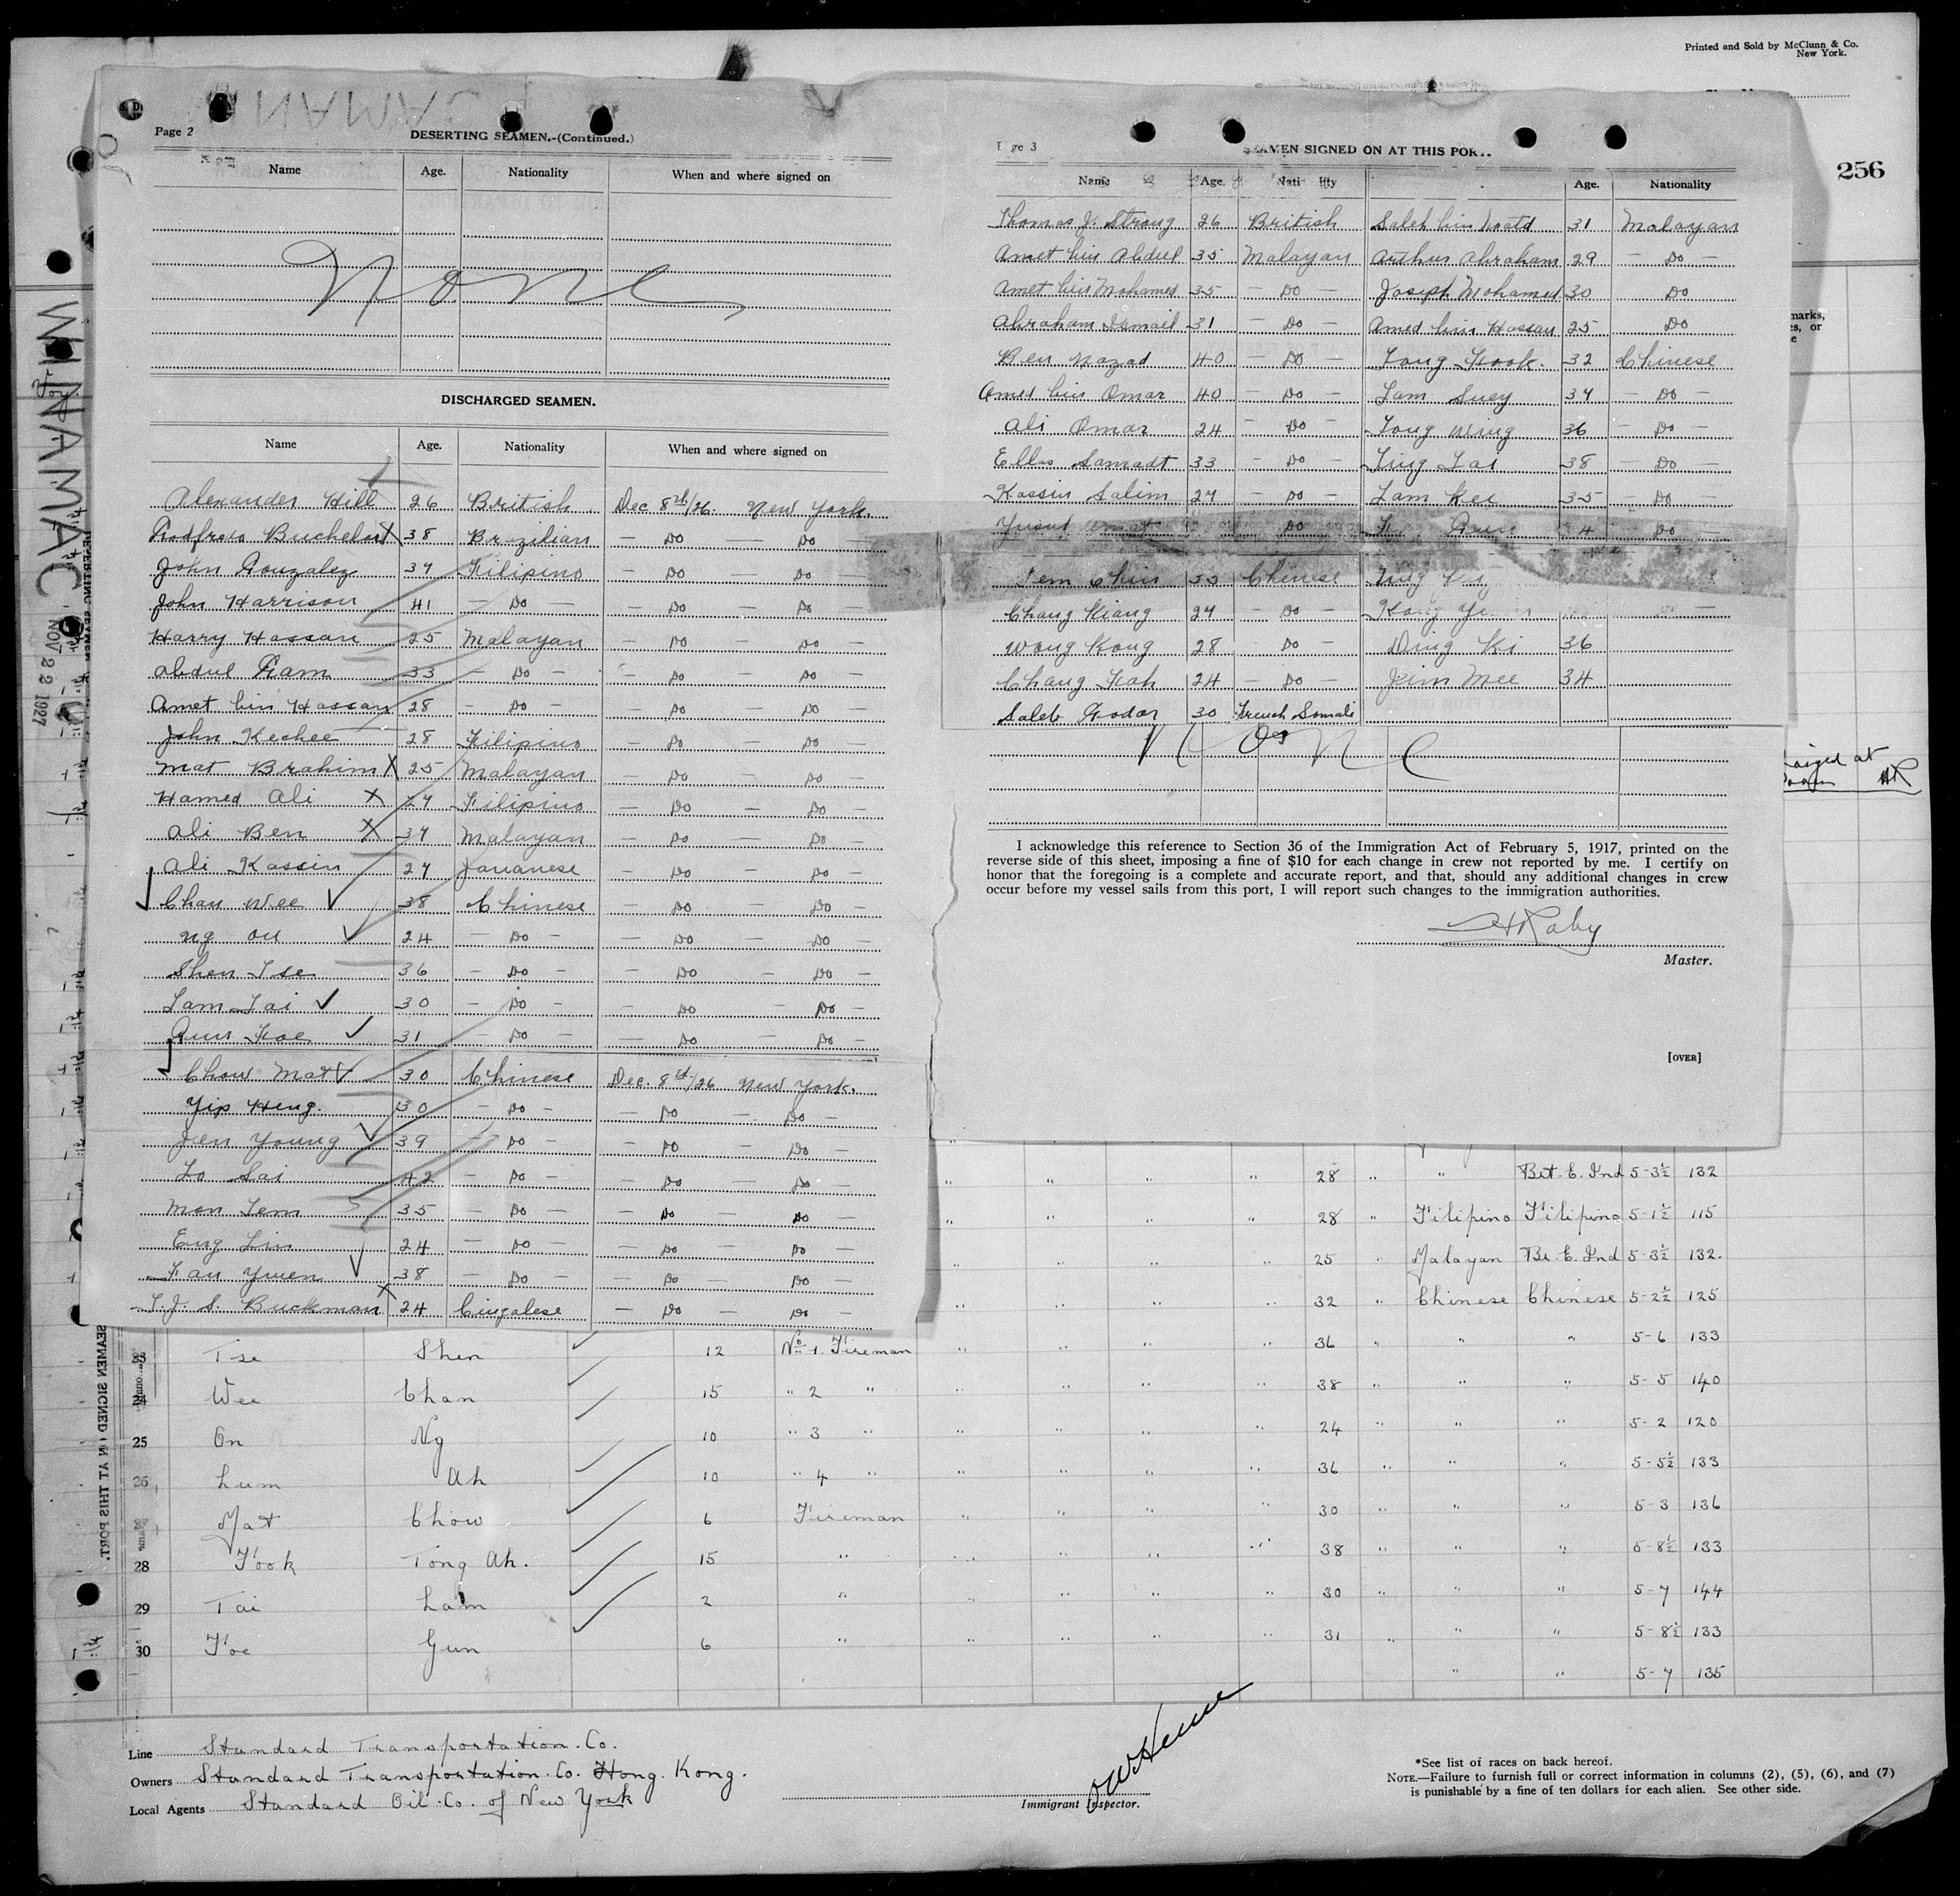 Printed and Sold by McClunn & Co.
New York.
256
Page 2
DESERTING SEAMEN.-(Continued.)
Name Age. Nationality When and where signed on
None
DISCHARGED SEAMEN.
Name Age. Nationality When and where signed on
Alexander Hill 26 British Dec 8th/26. New York.
Buchelor X 38 Brzilian — Do — Do —
John Gonzalez 37 Filipino — Do — Do —
John Harrison 41 — Do — — Do — Do —
Harry Hassan 25 Malayan — Do — Do —
Abdul Ram 33 — Do — — Do — Do —
Amet bin Hassan 28 — Do — — Do — Do —
John Kechee 28 Filipino — Do — Do —
Mat Brahim X 25 Malayan — Do — Do —
Hamed Ali X 27 Filipino — Do — Do —
Ali Ben X 37 Malayan — Do — Do —
Ali Kassin 27 Javanese — Do — Do —
Chau Wee ✓ 38 Chinese — Do — Do —
Ng On ✓ 24 — Do — — Do — Do —
Shen Tse 36 — Do — — Do — Do —
Lam Tai ✓ 30 — Do — — Do — Do —
Gun Foe ✓ 31 — Do — — Do — Do —
Chow Mat ✓ 30 Chinese Dec. 8th/26 New York.
Yip Heng. 30 — Do — — Do — Do —
Jien Young ✓ 39 — Do — — Do — Do —
Lo Sai 42 — Do — — Do — Do —
Mon Tem 35 — Do — — Do — Do —
Eng Lin 24 — Do — — Do — Do —
Fau Ywen ✓ 38 — Do — — Do — Do —
T. J. S. Buckman X 24 Cingalese — Do — Do —
WINAMAC
NOV 22 1927
SEAMEN SIGNED ON AT THIS PORT.
Page 3
SEAMEN SIGNED ON AT THIS PORT.
Name Age. Nationality Age. Nationality
Thomas J. Strong 26 British Saleh bin 31 Malayan
Amet bin Abdul 35 Malayan Arthur Abraham 29 — Do —
Amet bin Mohamed 35 — Do — Joseph Mohamed 30 Do
Abraham Ismail 31 — Do — Amed bin Hassan 25 Do
Ben Nazad 40 — Do — Tong Fook. 32 Chinese
Amed bin Omar 40 — Do — Lam Suey 37 — Do —
Ali Omar 24 — Do — Tong Wing 36 — Do —
Ellas Samadt 33 — Do — Ting Tai 38 — Do —
Kassin Salim 27 — Do — Lam Kei 35 — Do —
Yusuf Do 34 — Do —
Tem Shin 33 Chinese
Chang Kiang 27 — Do — Kong
Wong Kong 28 — Do — Ding Ki 36
Chang Fah 24 — Do — Jim Mee 34
Saleb Godar 30 French Somali
None
I acknowledge this reference to Section 36 of the Immigration Act of February 5, 1917, printed on the
reverse side of this sheet, imposing a fine of $10 for each change in crew not reported by me. I certify on
honor that the foregoing is a complete and accurate report, and that, should any additional changes in crew
occur before my vessel sails from this port, I will report such changes to the immigration authorities.
Master.
[OVER]
28 " " Brit. E. Ind 5-3½ 132
28 " Filipino Filipino 5-1½ 115
25 " Malayan Br. E. Ind 5-3½ 132.
32 " Chinese Chinese 5-2½ 125
23 Tse Shen 12 No. 1. Fireman 36 " " " 5-6 133
24 Wee Chan 15 " 2 " 38 " " " 5-5 140
25 On Ng 10 " 3 " 24 " " " 5-2 120
26 Lum Ah 10 " 4 " 36 " " " 5-5½ 133
27 Mat Chow 6 Fireman 30 " " " 5-3 136
28 Fook Tong Ah. 15 " 38 " " " 5-8½ 133
29 Tai Lam 2 " 30 " " " 5-7 144
30 Foe Gun 6 " 31 " " " 5-8½ 133
" " 5-7 135
Line Standard Transportation. Co.
Owners Standard Transportation. Co. Hong. Kong.
Local Agents Standard Oil. Co. of New York
Immigrant Inspector.
*See list of races on back hereof.
NOTE.—Failure to furnish full or correct information in columns (2), (5), (6), and (7)
is punishable by a fine of ten dollars for each alien. See other side.